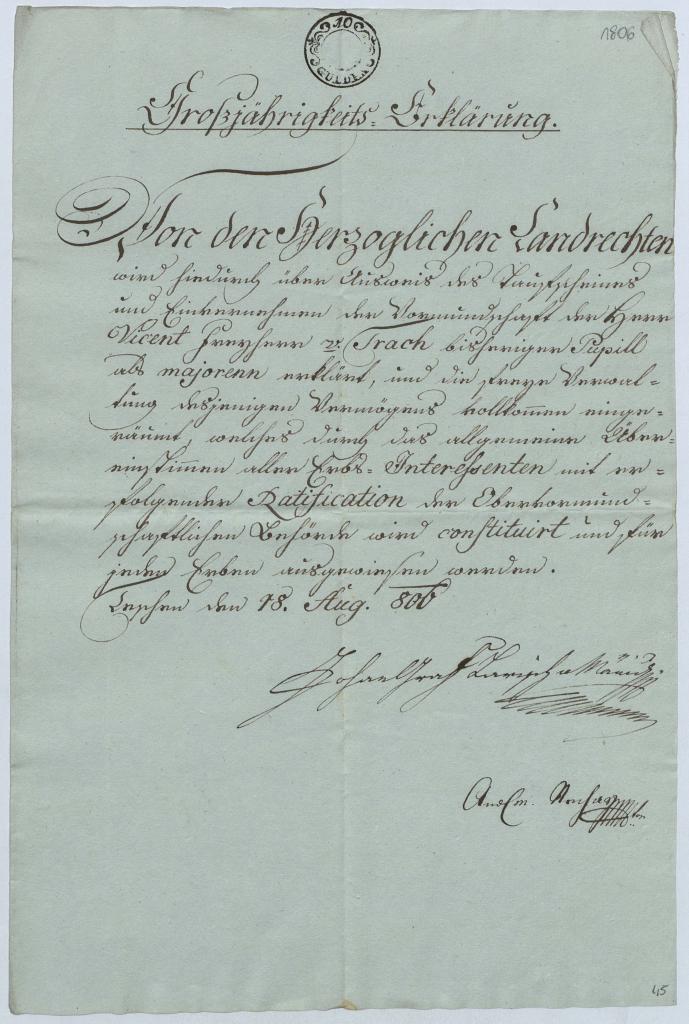 10
GULDEN
1806
Großjährigkeits-Erklärung.
Von den Herzoglichen Landrechten
wird hiedurch über Ausweis des Taufscheines
und Einvernehmen der Vormundschaft der Herr
Vicent Freyherr v. Trach bisheriger Pupill
als majorenn erklärt, und die freye Verwal-
tung desjenigen Vermögens vollkommen einge-
räumt, welches durch das allgemeine Über-
einstimmen aller Erbs-Interessenten mit er-
folgender Ratification der Obervormund-
schaftlichen Behörde wird constituirt und für
jeden Erben ausgewiesen werden.
Teschen den 18. Aug. 806
Johan Graf Larisch
45